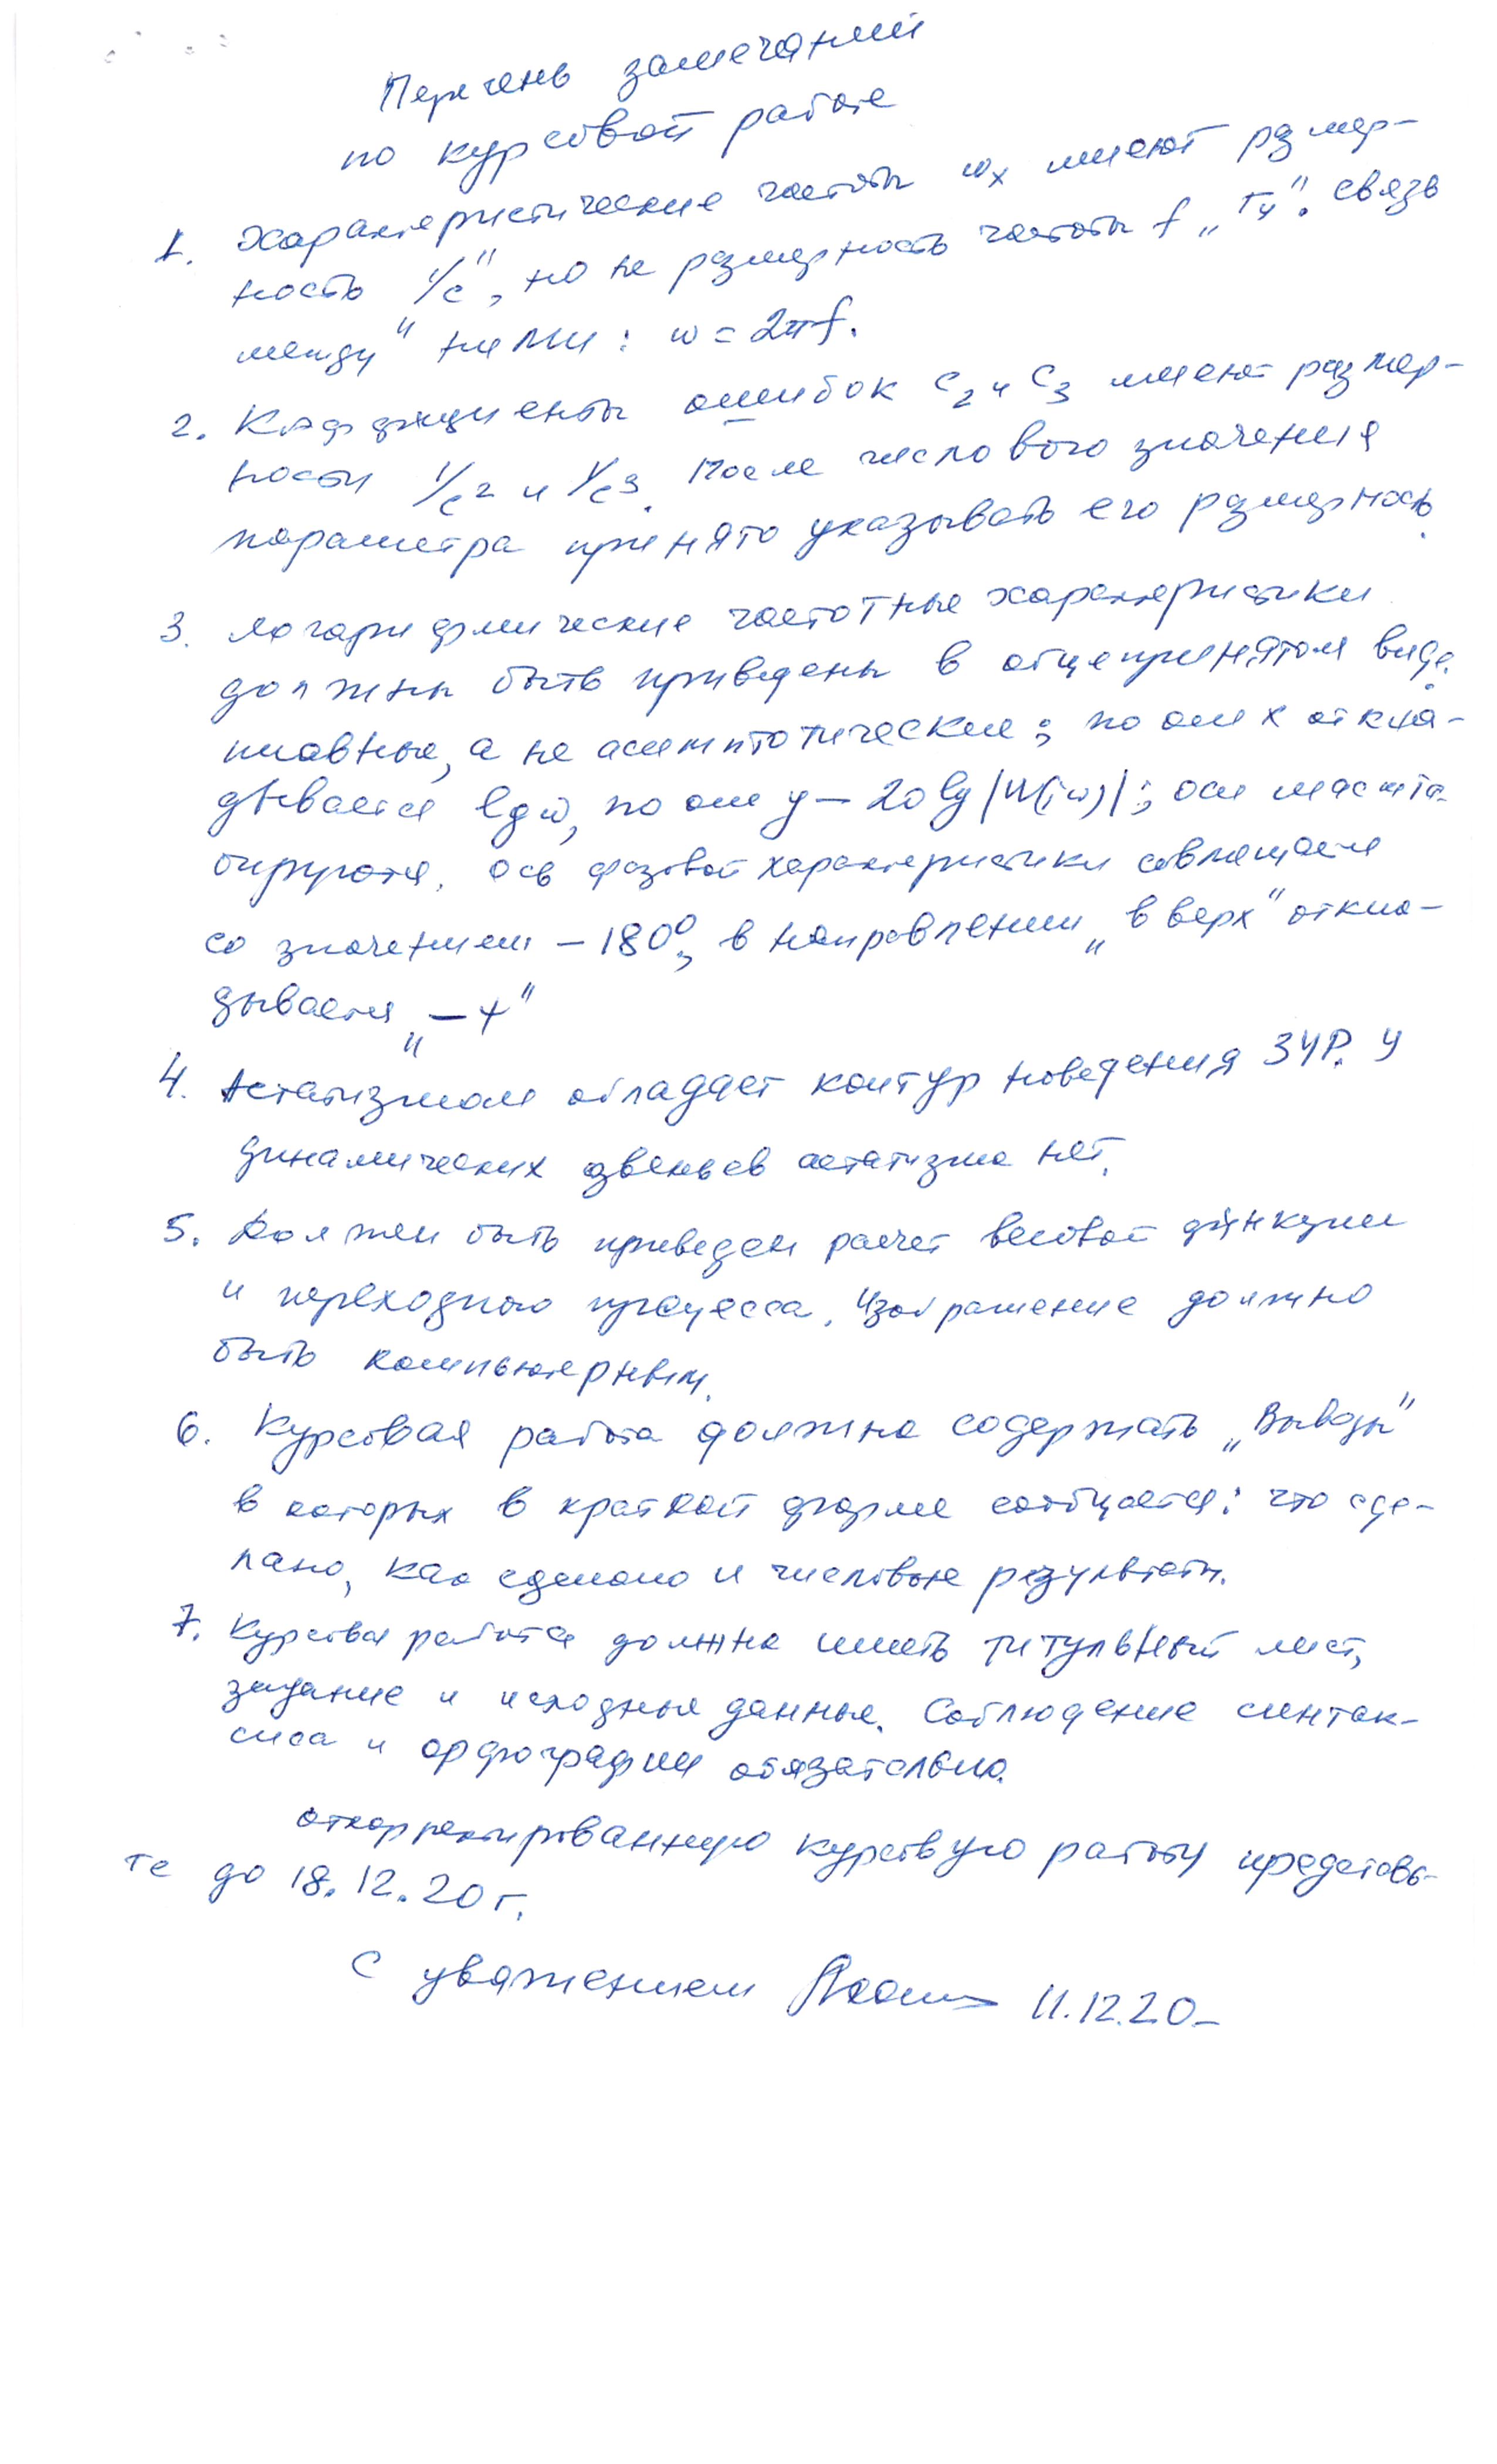 Перечень замечаний
по курсовой работе
1. Характеристические частоты ωх имеют размер-
ность „1/с", но не размерность частоты f „Гц". Связь
между ними: ω = 2πf.
2. Коэффициенты ошибок С2 и С3 имеют размер-
ности 1/с2 и 1/с3. После числового значения
параметра принято указывать его размерность.
3. Логарифмические частотные характеристики
должны быть приведены в общепринятом виде:
плавные, а не асимптотические; по оси х откла-
дывается lg ω, по оси y – 20 lg |W(jω)|; оси масшта-
бируются. Ось фазовой характеристики совмещается
со значением – 180°, в направлении „вверх" откла-
дывается „– +"
4. Астатизмом обладает контур наведения ЗУР. У
динамических звеньев астатизма нет.
5. Должен быть приведен расчет весовой функции
и переходного процесса. Изображение должно
быть компьютерным.
6. Курсовая работа должна содержать „Выводы"
в которых в краткой форме сообщается: что сде-
лано, как сделано и числовые результаты.
7. Курсовая работа должна иметь титульный лист,
задание и исходные данные. Соблюдение синтак-
сиса и орфографии обязательно.
Откорректированную курсовую работу представь-
те до 18.12.20 г.
С уважением 11.12.20